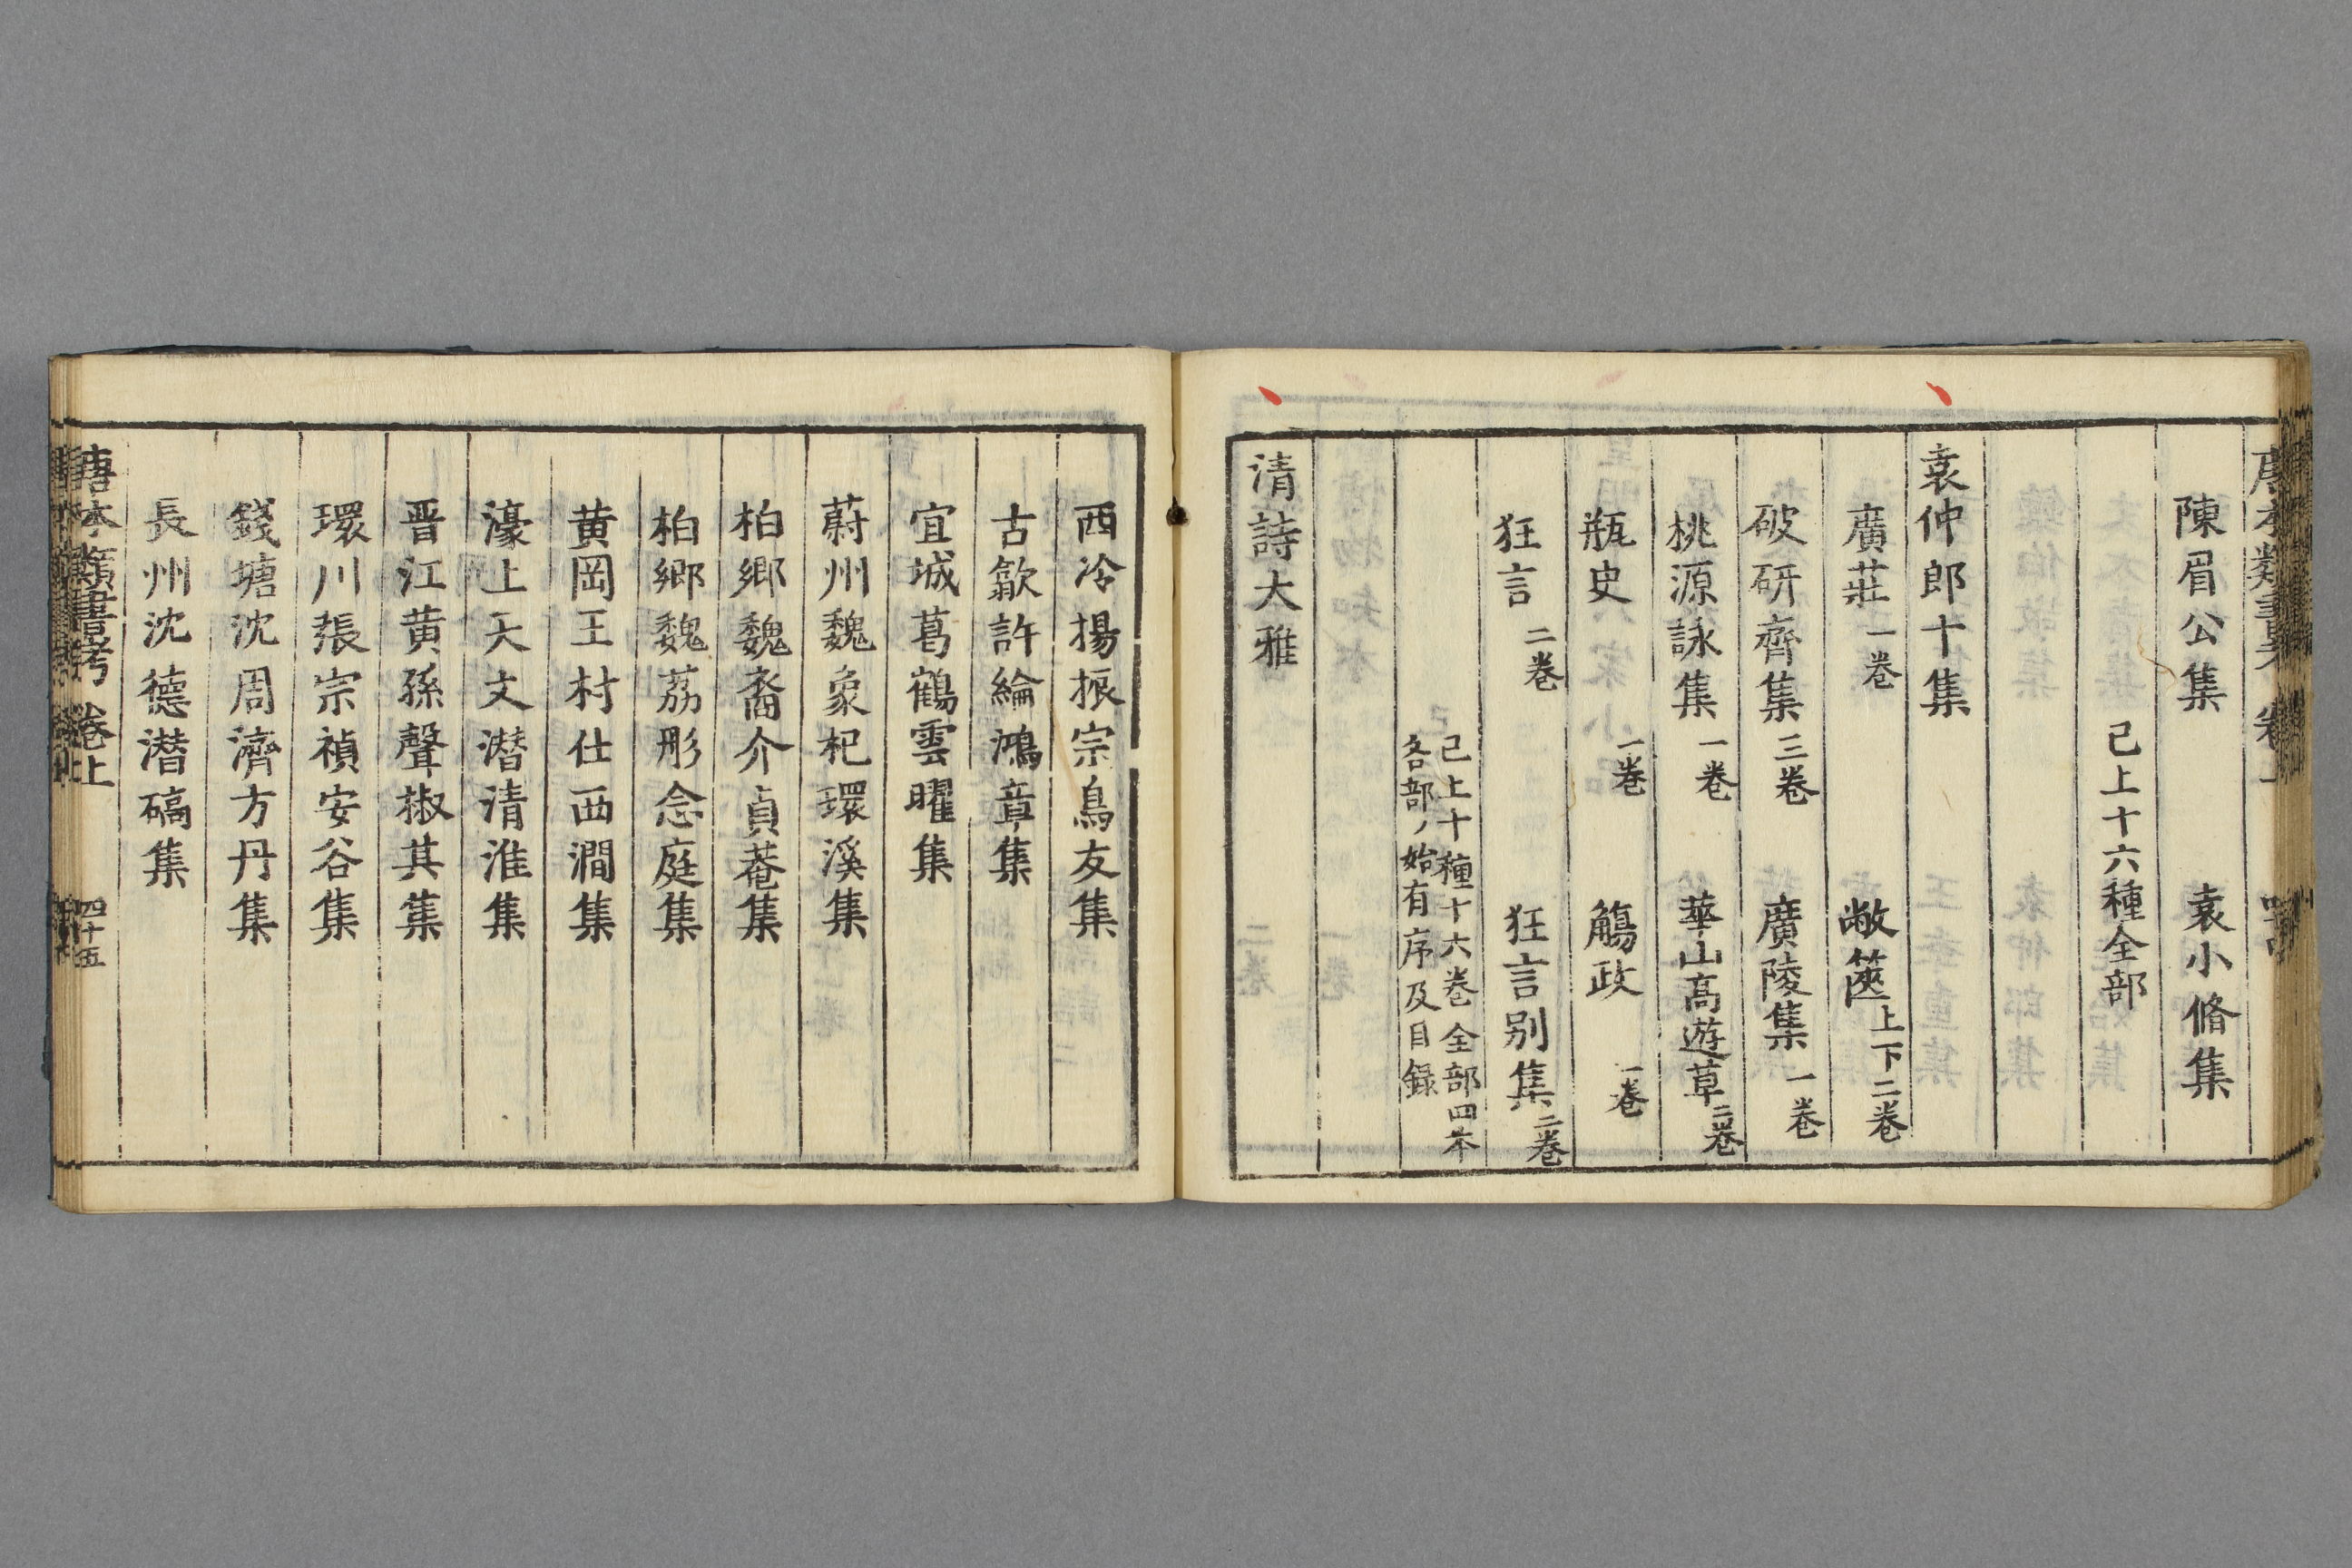 陳眉公集　袁小脩集
已上十六種全部
袁仲郎十集
廣莊一卷　敝篋上下二卷
破研齊集三卷　廣陵集一卷
桃源詠集一卷　華山高遊草二卷
瓶史一卷　觴政一卷
狂言二卷　狂言別集二卷
已上十種十六卷全部四本
各部ノ始有序及目録
清詩大雅
西冷揚振宗鳥友集
古歙許綸鴻章集
宜城葛鶴雲曜集
蔚州魏象杞環溪集
柏鄉魏裔介貞菴集
柏鄉魏荔彤念庭集
黄岡王材仕西澗集
濠上天文潜清淮集
晋江黄孫聲椒其集
環川張宗禎安谷集
錢塘沈周濟方丹集
長州沈德潜碻集
唐本類書考 卷上 四十五